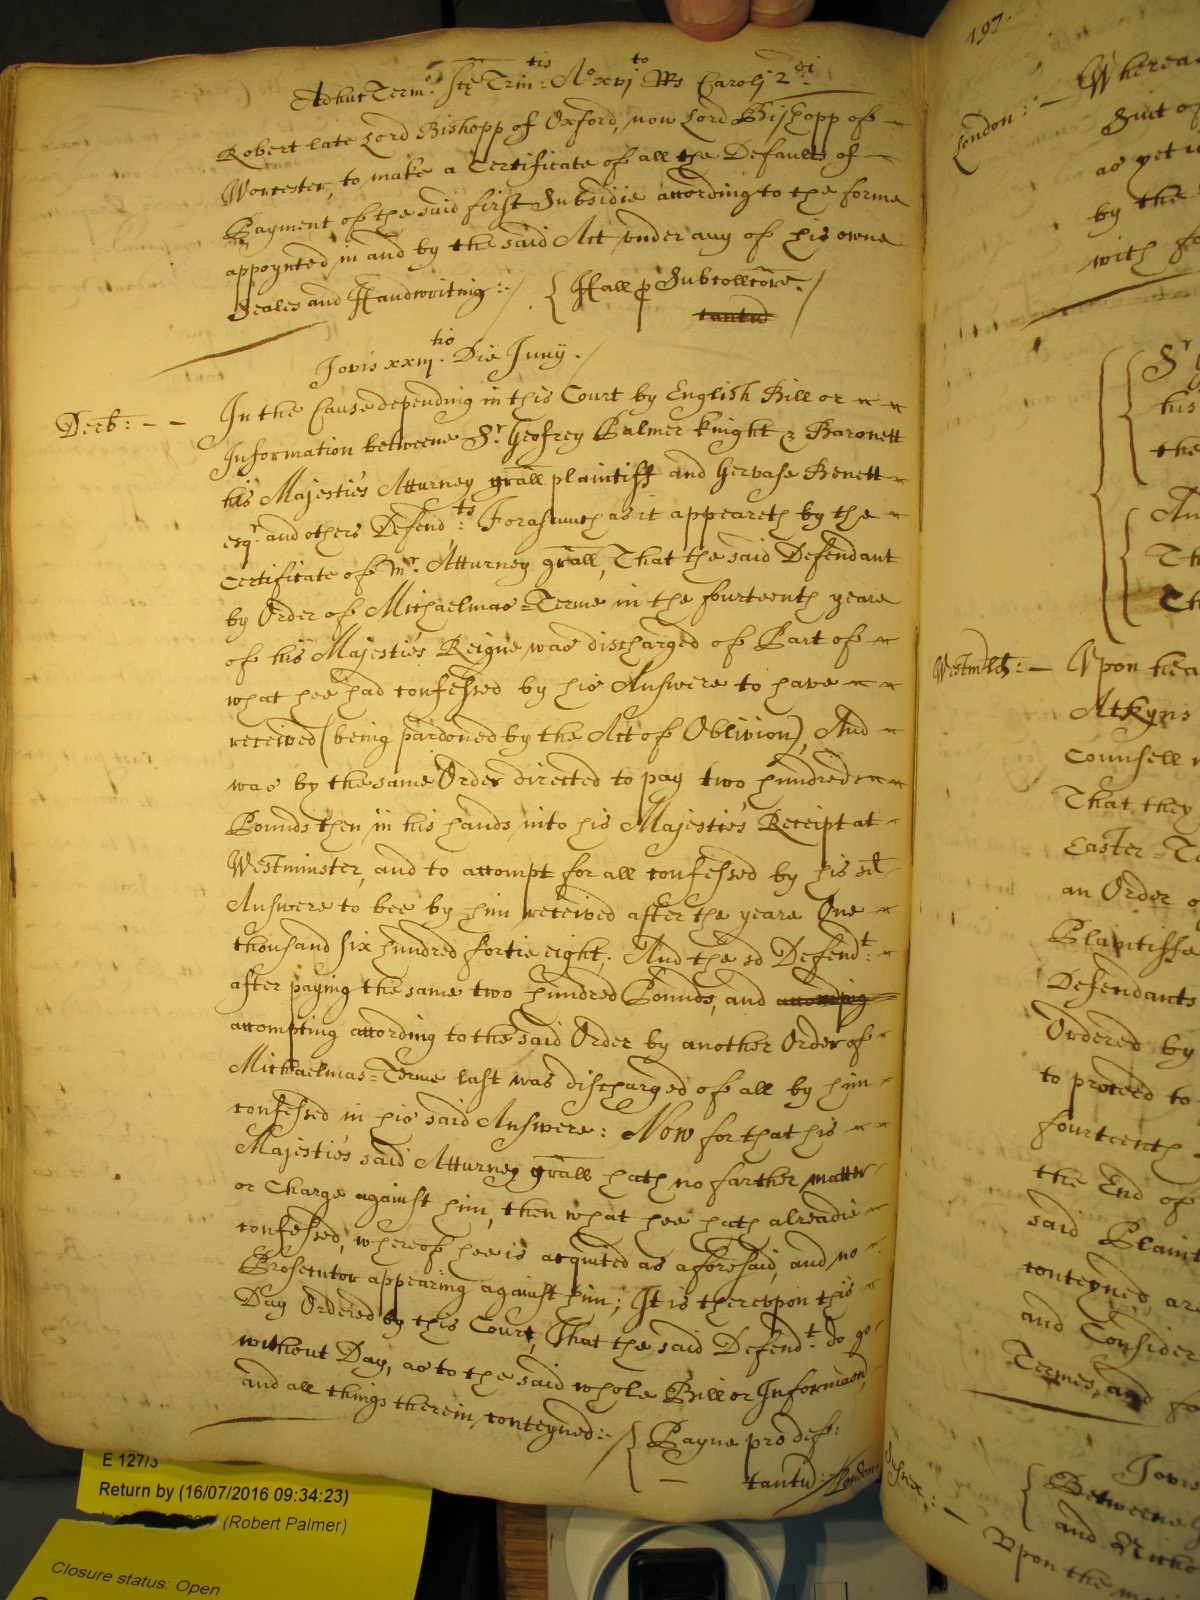 Adhuc Termo. Scẽ Trin:tis Ao xvjto RRs Carolj 2di
Robert late Lord Bishopp of Oxford, now Lord Bishopp of
Worcester, to make a Certificate of all the Defaults of
Payment of the said first Subsidie according to the forme
appoynted in and by the said Act vnder any of his owne
Seales and Handwriting:-/ { Hall p Subcollectore./
tantũ
Jovis xxiijtio. Die Junij./
Derb: - - In the Cause depending in this Court by English Bill or
Information betweene Sr. Geofrey Palmer Knight & Baronett
his Majesties Atturney grãll plaintiff and Gervase Benett
esqr. and others Defendts: Forasmuch as it appeareth by the
Certificate of Mr. Atturney grãll, That the said Defendant
by Order of Michaelmas=Terme in the fourteenth yeare
of his Majesties Reigne was discharged of Part of
what hee had confessed by his Answere to have
received (being pardoned by the Act of Oblivion), And
was by the same Order directed to pay two hundred
Pounds then in his hands into his Majesties Receipt at
Westminster, and to accompt for all confessed by his sd
Answere to bee by him received after the yeare One
thousand six hundred fortie eight; And the sd Defendt:
after paying the same two hundred Pounds, and
accompting according to the said Order by another Order of
Michaelmas=Terme last was discharged of all by him
confessed in his said Answere: Now for that his
Majesties said Atturney grãll hath no farther matter
or Charge against him, then what hee hath alreadie
confessed, whereof hee is acquited as aforesaid, and no
Prosecutor appearing against him; It is therevpon this
Day Ordered by this Court, That the said Defendt. do go
without Day, as to the said whole Bill or Informacon,
and all things therein conteyned:- { Payne pro def:
tantũ:/ London:
197.
London: - Wherea
Suit of
as yet
by the
with
Sr
his
the
An
Th
Th
Westmlđ: - Vpon hea
Atkyns
Counsell
That they
Easter=Te
an Order o
Plaintiffe
Defendants
Ordered by
to proceed to
fourteenth
the End of
said Plaint
conteyned ar
and Consider
Termes, and fo
Jovis
Sussex: - { Betweene
and Nicho
Vpon the mo
E 127/3
Return by (16/07/2016 09:34:23)
(Robert Palmer)
Closure status: Open